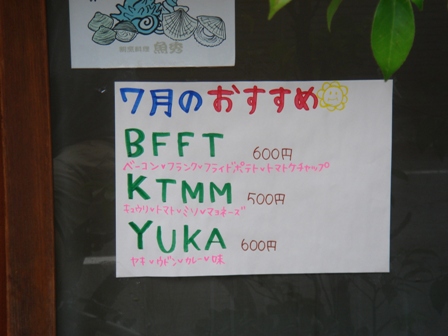 創菜料理 魚秀
7月のおすすめ
BFFT 600円
ベーコン♥フランク♥フライドポテト♥トマトケチャップ
KTMM 500円
キュウリ♥トマト♥ミソ♥マヨネーズ
YUKA 600円
ヤキ♥ウドン♥カレー♥味